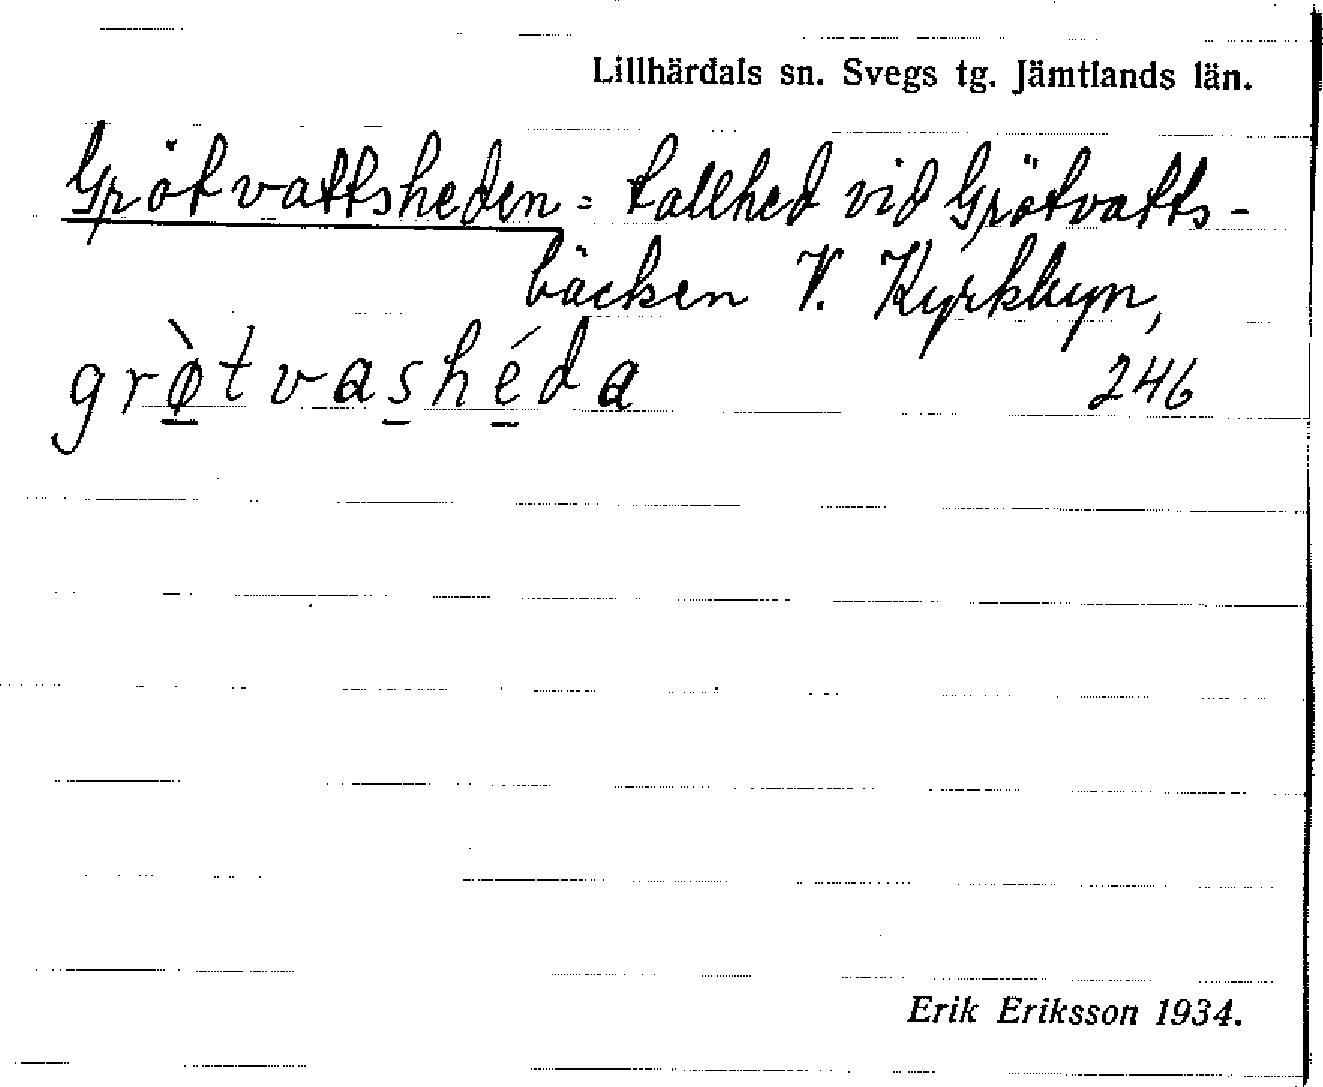 Lillhärdals sn. Svegs tg. Jämtlands län.
Grötvattsheden = tallhed vid Grötvatts-
bäcken V. Kyrkbyn,
grø̀tvashéda 246
Erik Eriksson 1934.